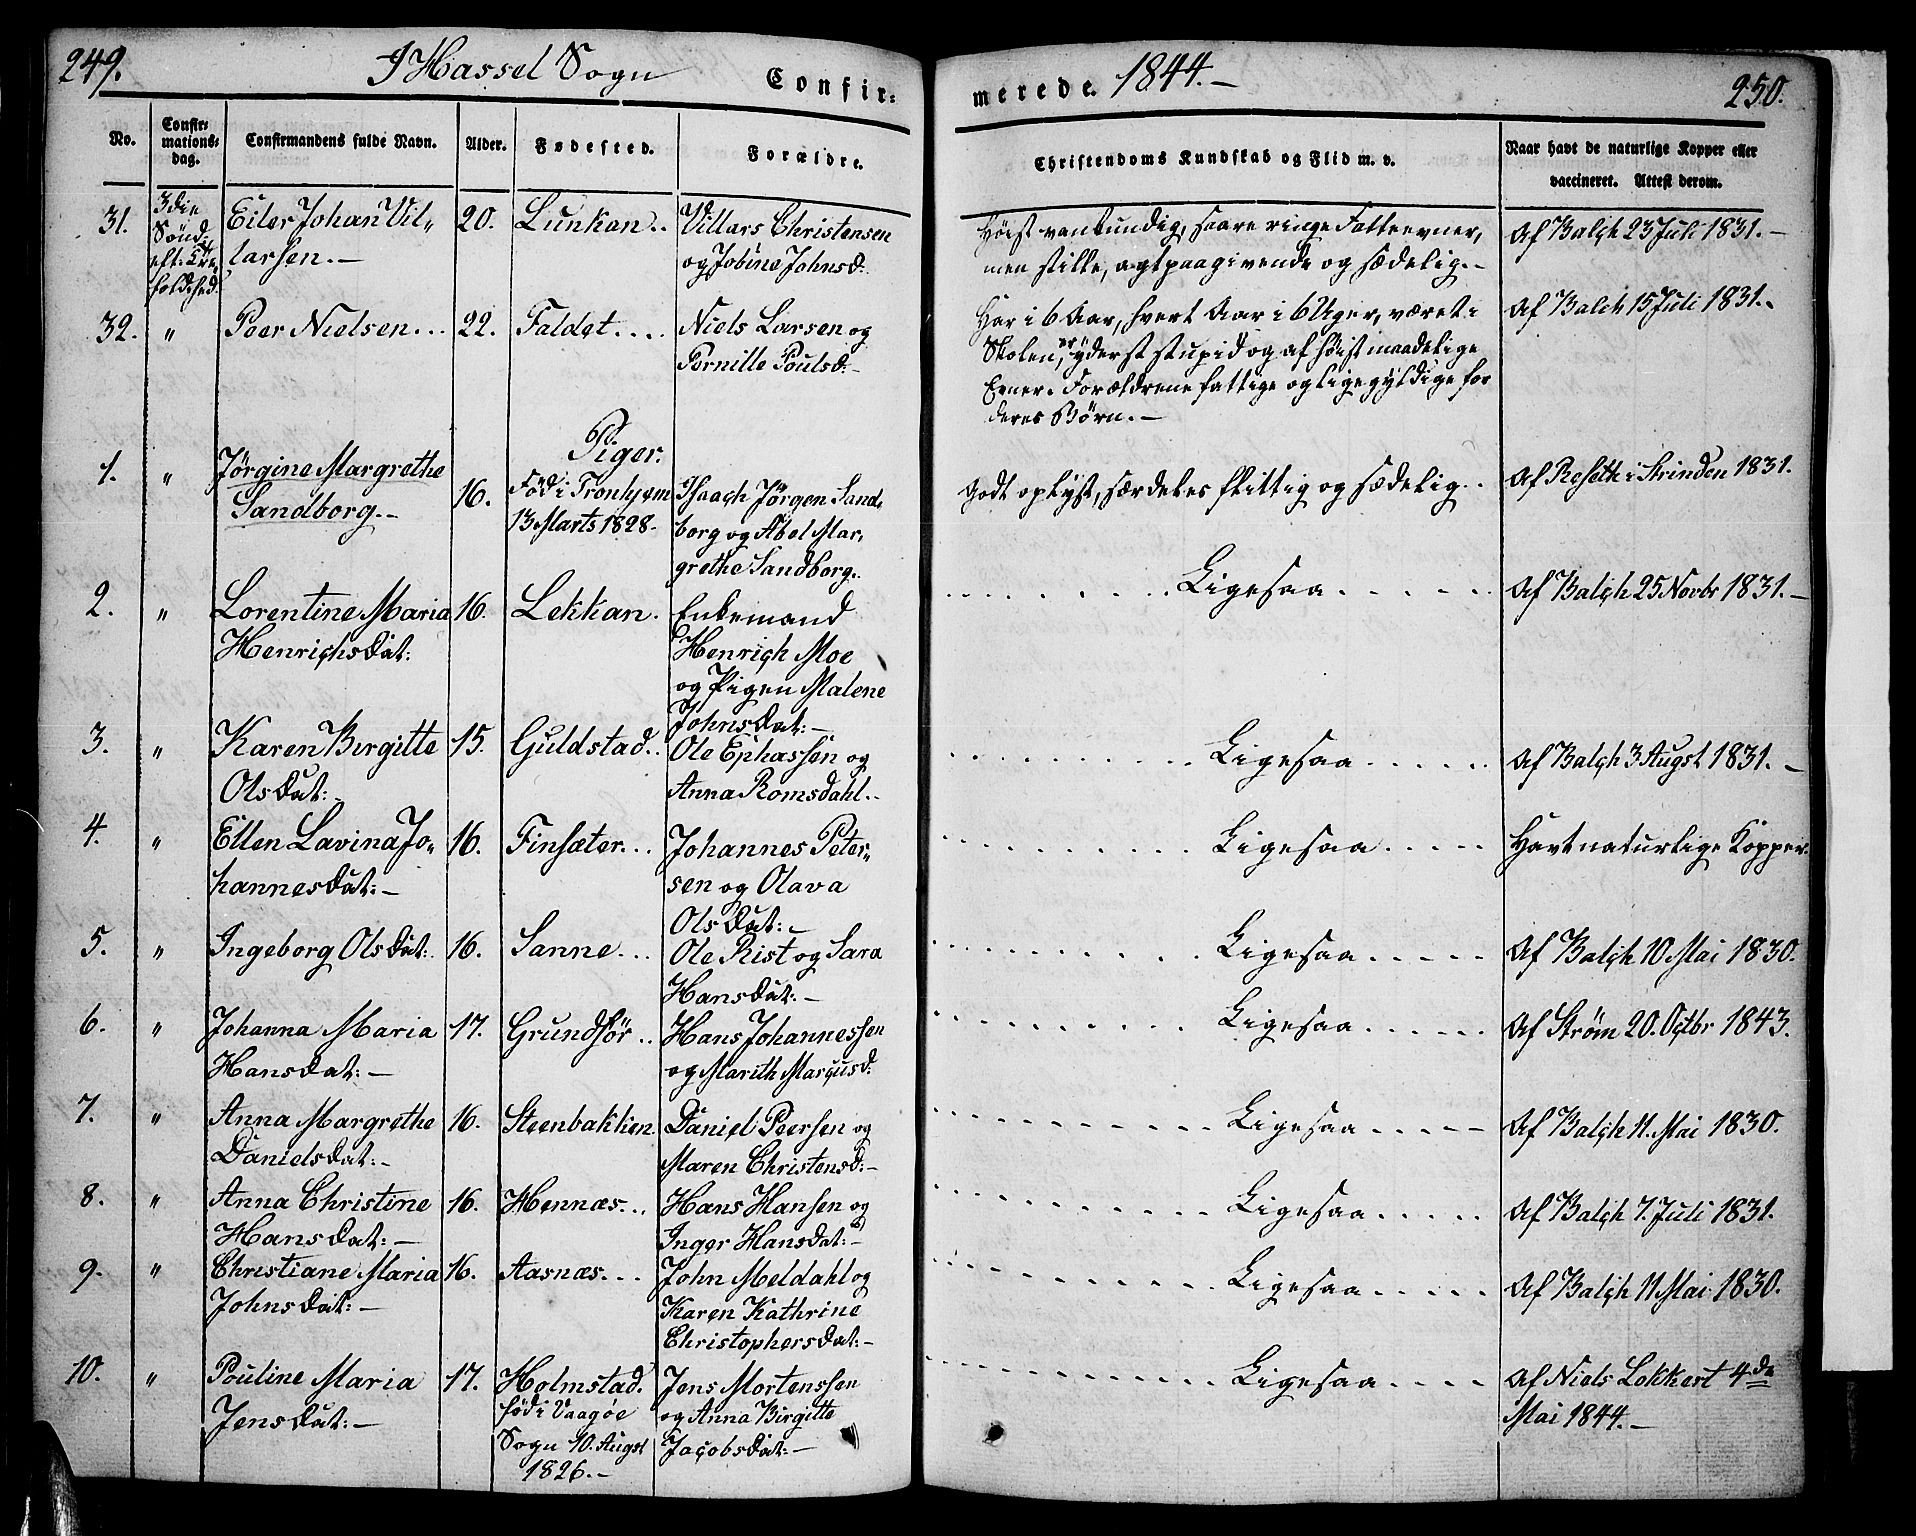 249.
I Hassel Sogn
Confir-
No.
Confir-
mations-
dag.
Confirmandens fulde Navn.
Alder.
Fødested.
Forældre.
31.
3die
Sønd:
eft:
Eiler Johan Vil-
larsen.-
20.
Lunkan..
Villars Christensen
og Jobine Johnsd:
32. "
Peer Nielsen...
22.
Faldet....
Niels Larsen og
Pernille Poulsd:-
Piger.
1. "
Jørgine Margrethe
Sandborg.-
16.
Fød i Tronhjem
13 Marts 1828.
Isaach Jørgen Sand-
borg og Abel Mar-
grethe Sandborg.
2. "
Lorentine Maria
Henrichsdat:
16.
Lekkan.
Enkemand
Henrich Moe
og Pigen Malene
Johnsdat:-
3. "
Karen Birgitte
Olsdat:-
15.
Guldstad..
Ole Ephassen og
Anna Romsdahl.-
4. "
Ellen Lavina Jo-
hannesdat:-
16.
Finsæter...
Johannes Peter-
sen og Olava
Olsdat:-
5. "
Ingeborg Olsdat:.
16.
Sanne...
Ole Rist og Sara
Hansdat:-
6. "
Johanna Maria
Hansdat:-
17.
Grundfør..
Hans Johannessen
og Marith Marcusd:
7. "
Anna Margrethe
Danielsdat:-
16.
Steenbakken
Daniel Peersen og
Maren Christensd:-
8. "
Anna Christine
Hansdat:-
16.
Hennæs...
Hans Hansen og
Inger Hansdat:-
9. "
Christiane Maria
Johnsdat:-
16.
Aasnæs...
John Meldahl og
Karen Kathrine
Christophersdat:-
10. "
Pouline Maria
Jensdat:-
17.
Holmstad.
fød i Vaagøe
Sogn 10. Augst
1826.-
Jens Mortenssen
og Anna Birgitte
Jacobsdat:-
merede. 1844.-
250.
Christendoms Kundskab og Flid m. v.
Naar havt de naturlige Kopper eller
vaccineret. Attest derom.
Høist vankundig, saare ringe Fatteevner,
men stille, agtpaagivende og sædelig.-
Af Balch 23 Juli 1831.-
Har i 6 Aar, hvert Aar i 6 Uger, været i
Skolen, er yderst stupid og af høist maadelige
Evner. Forældrene fattige og ligegyldige for
deres Børn.-
Af Balch 15 Juli 1831.
Godt oplyst, særdeles flittig og sædelig..
Af Reseth i Strinden 1831.
Ligesaa
Af Balch 25 Novbr 1831.-
Ligesaa
Af Balch 3 Augst 1831.-
Ligesaa
Havt naturlige Kopper.
Ligesaa
Af Balch 10 Mai 1830.
Ligesaa
Af Strøm 20. Octbr 1843.
Ligesaa
Af Balch 11. Mai 1830.
Ligesaa
Af Balch 7. Juli 1831.
Ligesaa
Af Balch 11 Mai 1830.
Ligesaa
Af Niels Lekkert 4de
Mai 1844.-